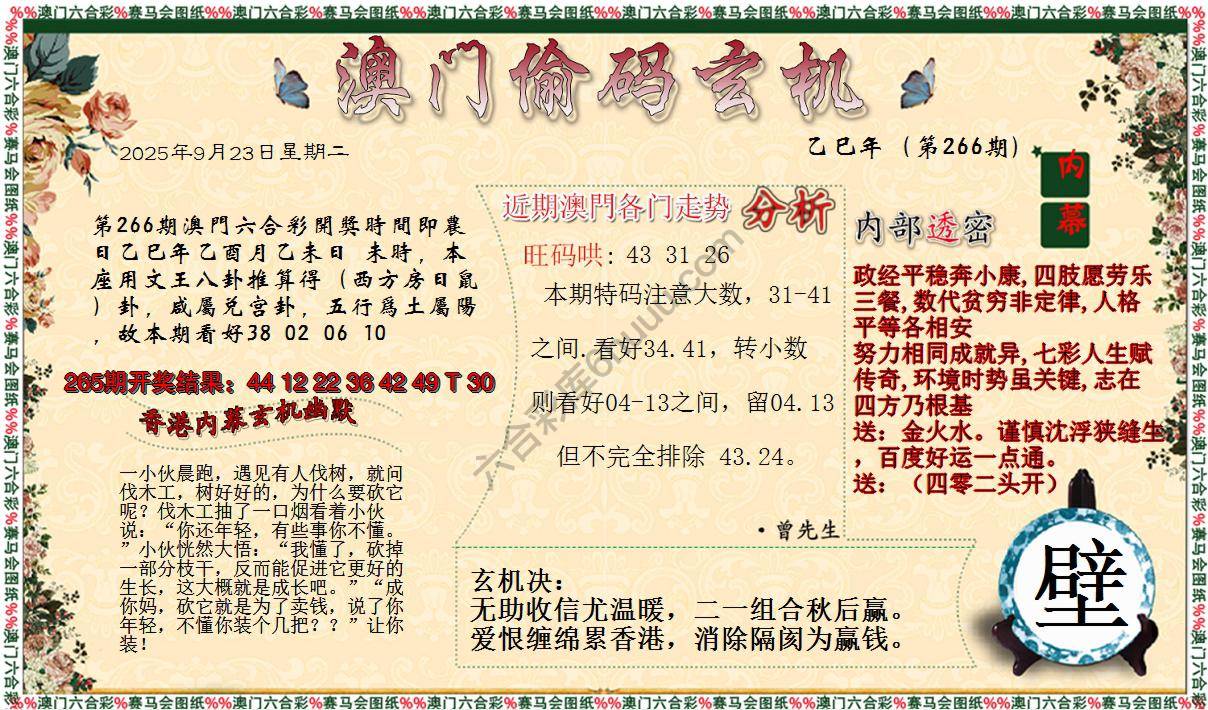 %%澳门六合彩%赛马会图纸%%澳门六合彩%赛马会图纸%%澳门六合彩%赛马会图纸%%澳门六合彩%赛马会图纸%%澳门六合彩%赛马会图纸%%澳门六合彩%赛马会图纸%%
澳门偷码玄机
2025年9月23日星期二
乙巳年（第266期）
内幕
第266期澳門六合彩開獎時間即農
日乙巳年乙酉月乙未日 未時，本
座用文王八卦推算得（西方房日鼠
）卦，咸屬兑宫卦，五行爲土屬陽
，故本期看好38 02 06 10
265期开奖结果：44 12 22 36 42 49 T 30
香港内幕玄机幽默
一小伙晨跑，遇见有人伐树，就问
伐木工，树好好的，为什么要砍它
呢？伐木工抽了一口烟看着小伙
说：“你还年轻，有些事你不懂。
”小伙恍然大悟：“我懂了，砍掉
一部分枝干，反而能促进它更好的
生长，这大概就是成长吧。”“成
你妈，砍它就是为了卖钱，说了你
年轻，不懂你装个几把？？”让你
装！
近期澳門各门走势 分析
旺码哄：43 31 26
本期特码注意大数，31-41
之间.看好34.41，转小数
则看好04-13之间，留04.13
但不完全排除 43.24。
·曾先生
内部透密
政经平稳奔小康,四肢愿劳乐
三餐,数代贫穷非定律,人格
平等各相安
努力相同成就异,七彩人生赋
传奇,环境时势虽关键,志在
四方乃根基
送：金火水。谨慎沈浮狭缝生
，百度好运一点通。
送：（四零二头开）
玄机决：
无助收信尤温暖，二一组合秋后赢。
爱恨缠绵累香港，消除隔阂为赢钱。
壁
%%澳门六合彩%赛马会图纸%%澳门六合彩%赛马会图纸%%澳门六合彩%赛马会图纸%%澳门六合彩%赛马会图纸%%澳门六合彩%赛马会图纸%%澳门六合彩%赛马会图纸%%